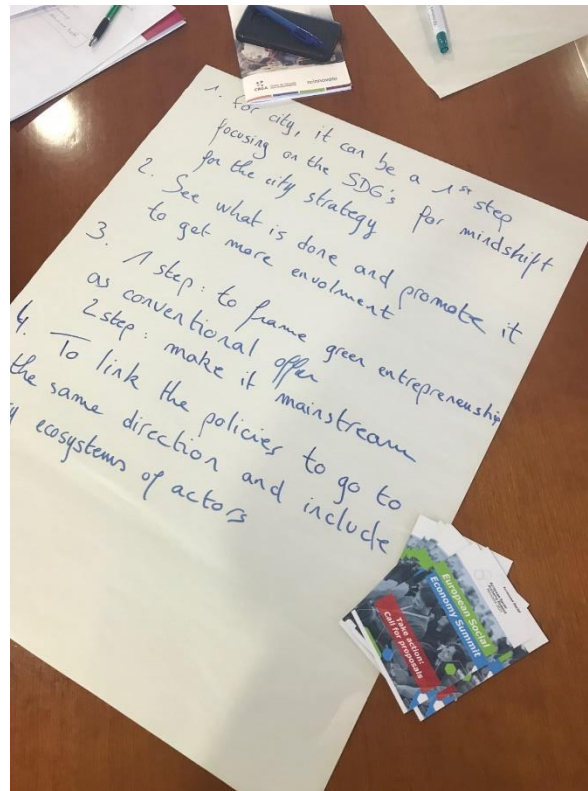 1. For city, it can be a 1st step
focusing on the SDG's for mindshift
for the city strategy
2. See what is done and promote it
to get more envolment
3. 1 step: to frame green entrepreneurship
as conventional offer
2 step: make it mainstream
4. To link the policies to go to
the same direction and include
ecosystems of actors
European Social
Economy Summit
Take action:
Call for proposals